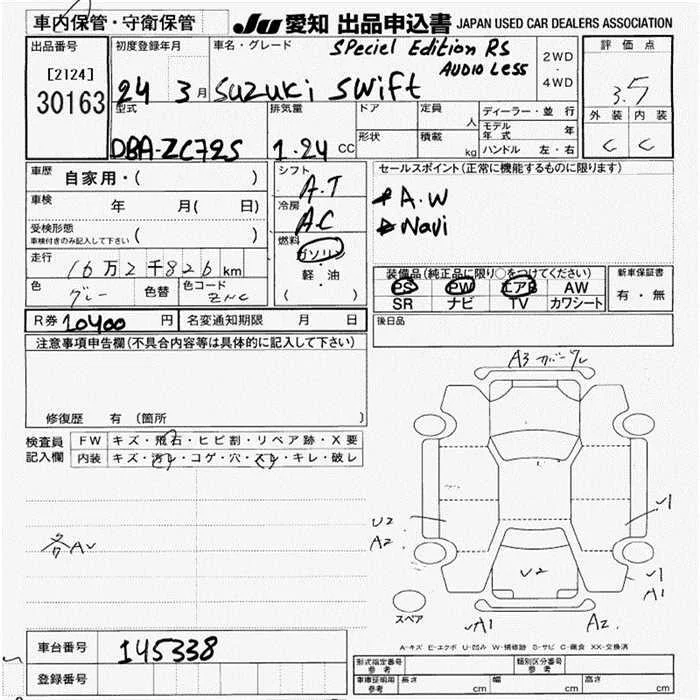 車内保管・守衛保管
JU 愛知 出品申込書 JAPAN USED CAR DEALERS ASSOCIATION
出品番号
[2124]
30163
初度登録年月
24 3月
車名・グレード
SPeciel Edition RS
AUDIO Less
Suzuki swift
2WD
・
4WD
評価点
3.5
外装 内装
C C
型式
DBA-ZC72S
排気量
1.24 CC
ドア
定員 人
形状
積載 kg
ディーラー・並行
モデル年式 年
ハンドル 左・右
車歴 自家用・( )
車検 年 月( 日)
受検形態
車検付きのみ記入して下さい ( )
走行
16万2千826km
色 グレー 色替 色コード ZNC
シフト
A.T
冷房
A.C
燃料
ガソリン
・
軽・油
( )
セールスポイント(正常に機能するものに限ります)
A.W
Navi
装備品(純正品に限り○をつけてください)
PS PW エアB AW
SR ナビ TV カワシート
新車保証書
有・無
R券 10400 円 名変通知期限 月 日
後日品
注意事項申告欄(不具合内容等は具体的に記入して下さい)
修復歴 有 (箇所 )
検査員
記入欄
FW キズ・飛石・ヒビ割・リペア跡・X要
内装 キズ・汚レ・コゲ・穴・スレ・キレ・破レ
各AU
A3 ガバーグレ
U2
A2
U2
U1
U1
A1
スペア
A1
A2
A-キズ E-エクボ U-凹ミ W-補修跡 S-サビ C-腐食 XX-交換済
車台番号 145338
登録番号
形式指定番号
参考
類別区分番号
参考
車庫証明用
参考
長さ cm 幅 cm 高さ cm